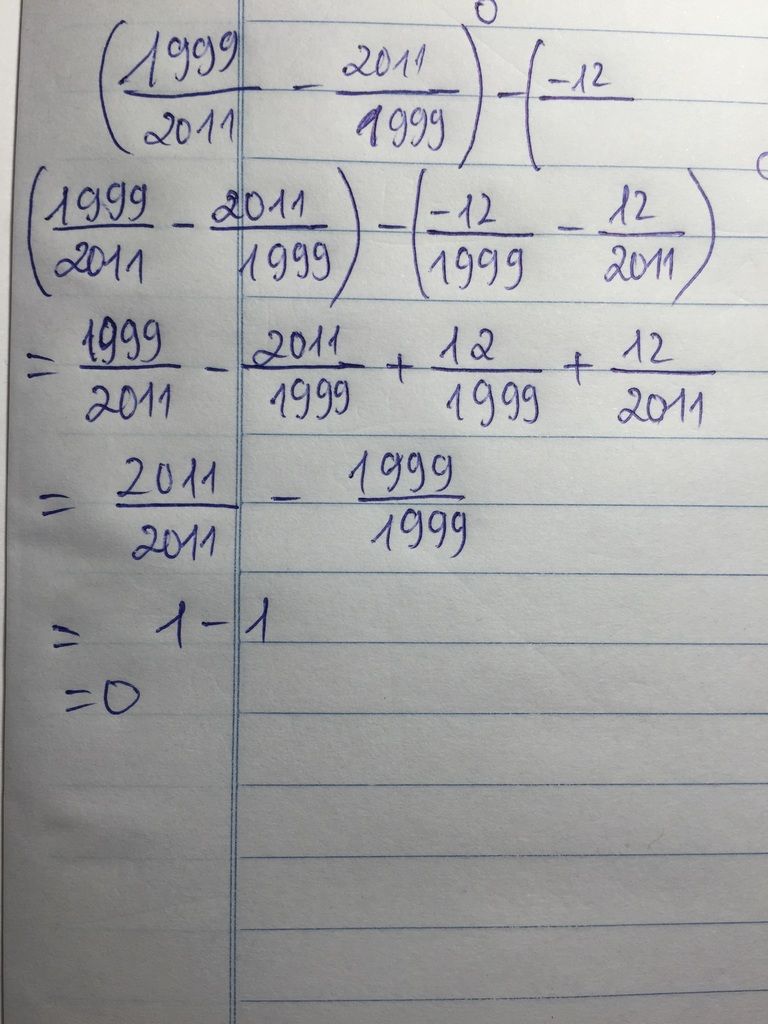 (1999/2011 - 2011/1999) - (-12/
(1999/2011 - 2011/1999) - (-12/1999 - 12/2011)
= 1999/2011 - 2011/1999 + 12/1999 + 12/2011
= 2011/2011 - 1999/1999
= 1 - 1
= 0